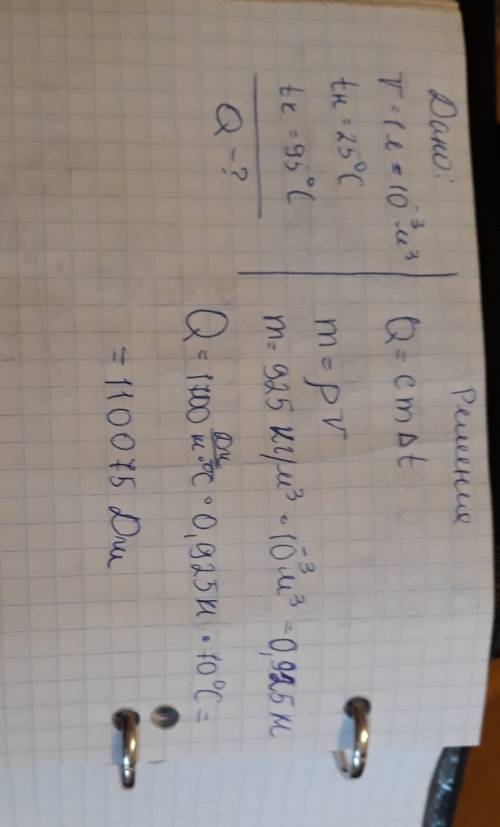 Дано:
V = 1 л = 10⁻³ м³
tн = 25°C
tк = 95°C
Q - ?
Решение
Q = cmΔt
m = ρV
m = 925 кг/м³ · 10⁻³ м³ = 0,925 кг
Q = 1700 Дж/кг·°C · 0,925 кг · 70°C =
= 110075 Дж